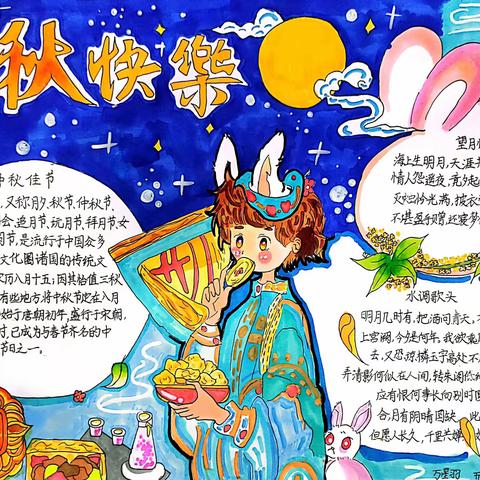 秋快樂
中秋佳节
又称月夕、秋节、仲秋节、
会、追月节、玩月节、拜月节、女
节,是流行于中国众多
文化圈诸国的传统文
农历八月十五;因其恰值三秋
有些地方将中秋节定在八月
始于唐朝初年,盛行于宋朝,
时,已成为与春节齐名的中
节日之一。
望月
海上生明月,天涯
情人怨遥夜,竟夕起
灭烛怜光满,披衣
不堪盈手赠,还寝梦
水调歌头
明月几时有,把酒问青天,不
上宫阙,今是何年,我欲乘
去,又恐琼楼玉宇高处不
弄清影何似在人间,转朱阁低
应有恨何事长向别时圆
合,月有阴晴圆缺,此
但愿人长久,千里共婵